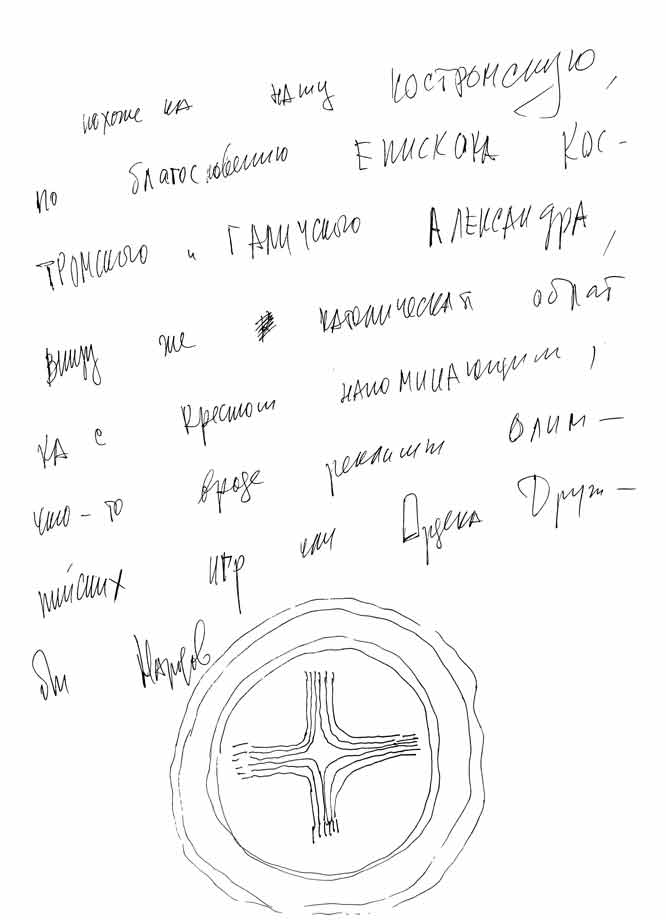 похоже на нашу КОСТРОМСКУЮ,
по благословению ЕПИСКОПА КОС-
ТРОМСКОГО и ГАЛИЧСКОГО АЛЕКСАНДРА,
внизу же католическая облат
ка с крестом напоминающим,
что-то вроде реклам олим-
пийских игр или Ордена Друж-
бы Народов